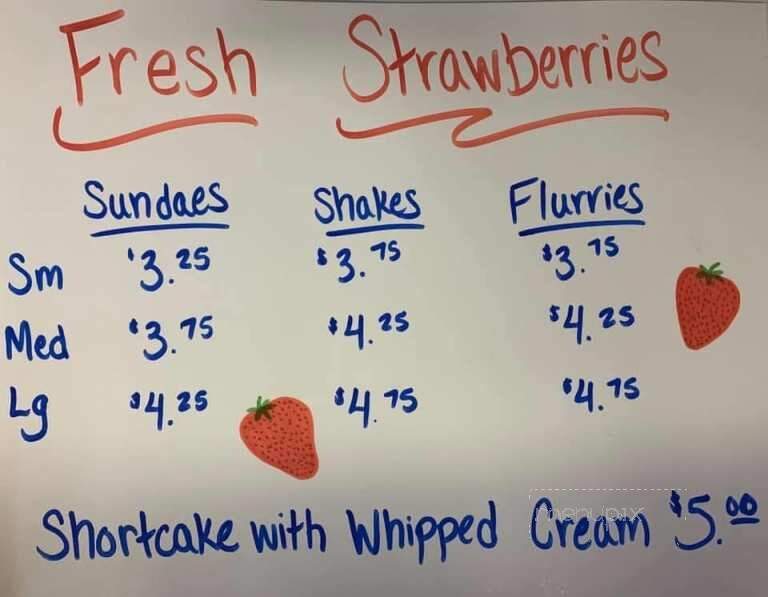 Fresh Strawberries
Sundaes Shakes Flurries
Sm $3.25 $3.75 $3.75
Med $3.75 $4.25 $4.25
Lg $4.25 $4.75 $4.75
Shortcake with Whipped Cream $5.00
menupix